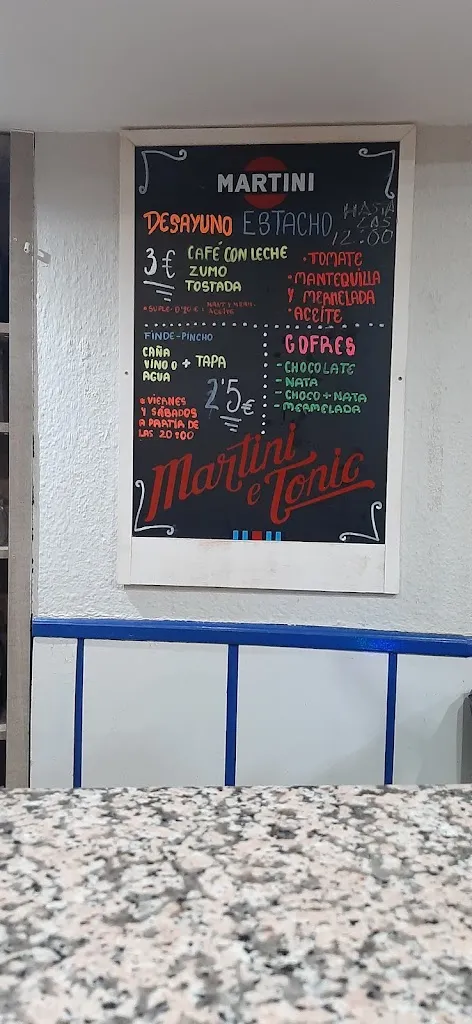 MARTINI
DESAYUNO ESTACHO HASTA
LAS
12:00
3€ CAFÉ CON LECHE
ZUMO
TOSTADA
• TOMATE
• MANTEQUILLA
Y MERMELADA
• ACEITE
ACEITE
FINDE-PINCHO
CAÑA
VINO O + TAPA
AGUA
2'5€
• VIERNES
Y SÁBADOS
A PARTIR DE
LAS 20:00
GOFRES
- CHOCOLATE
- NATA
- CHOCO + NATA
- MERMELADA
Martini
e Tonic